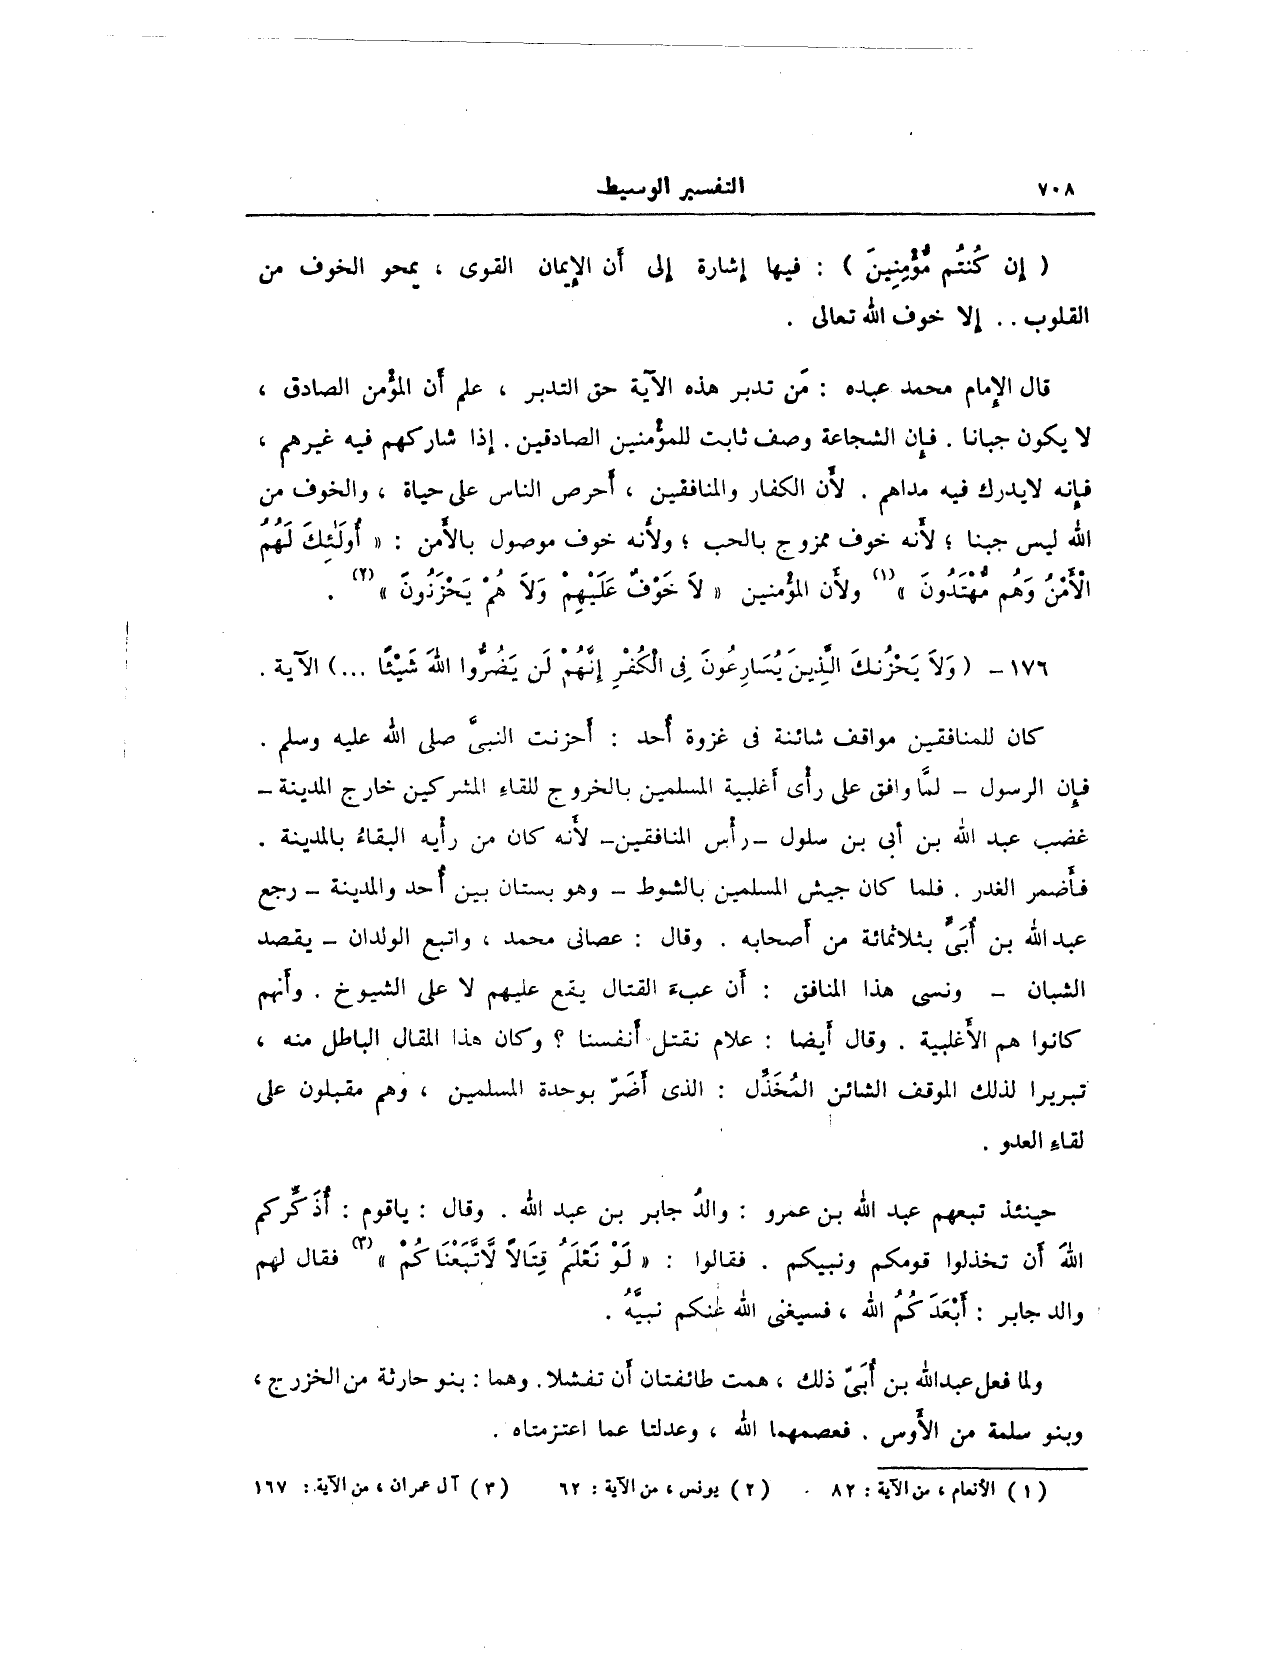 ٧٠٨ التفسير الوسيط
( إِن كُنتُم مُّؤْمِنِينَ ) : فيها إشارة إلى أَن الإِيمان القوى ، يمحو الخوف من
القلوب .. إلا خوف الله تعالى .
قال الإِمام محمد عبده : مَن تدبر هذه الآية حق التدبر ، علم أَن المؤْمن الصادق ،
لا يكون جبانا . فإن الشجاعة وصف ثابت للمؤْمنين الصادقين . إذا شاركهم فيه غيرهم ،
فإنه لايدرك فيه مداهم . لأَن الكفار والمنافقين ، أَحرص الناس على حياة ، والخوف من
الله ليس جبنا ؛ لأَنه خوف ممزوج بالحب ؛ ولأَنه خوف موصول بالأَمن : « أُولَٰئِكَ لَهُمُ
الْأَمْنُ وَهُم مُّهْتَدُونَ » (١) ولأَن المؤْمنين « لاَ خَوْفٌ عَلَيْهِمْ وَلاَ هُمْ يَحْزَنُونَ » (٢) .
١٧٦ – ( وَلاَ يَحْزُنكَ الَّذِينَ يُسَارِعُونَ فِى الْكُفْرِ إِنَّهُمْ لَن يَضُرُّوا اللهَ شَيْئًا ... ) الآية .
كان للمنافقين مواقف شائنة فى غزوة أُحد : أَحزنت النبىَّ صلى الله عليه وسلم .
فإن الرسول – لمَّا وافق على رأْى أَغلبية المسلمين بالخروج للقاءِ المشركين خارج المدينة –
غضب عبد الله بن أَبى بن سلول – رأْس المنافقين – لأَنه كان من رأْيه البقاءُ بالمدينة .
فأَضمر الغدر . فلما كان جيش المسلمين بالشوط – وهو بستان بين أُحد والمدينة – رجع
عبد الله بن أُبَىٍّ بثلاثمائة من أَصحابه . وقال : عصانى محمد ، واتبع الولدان – يقصد
الشبان – ونسى هذا المنافق : أَن عبءَ القتال يقع عليهم لا على الشيوخ . وأَنهم
كانوا هم الأَغلبية . وقال أَيضا : علام نقتل أَنفسنا ؟ وكان هذا المقال الباطل منه ،
تبريرا لذلك الموقف الشائن المُخَذِّل : الذى أَضَرّ بوحدة المسلمين ، وهم مقبلون على
لقاءِ العدو .
حينئذ تبعهم عبد الله بن عمرو : والدُ جابر بن عبد الله . وقال : ياقوم : أُذَكِّركم
اللهَ أَن تخذلوا قومكم ونبيكم . فقالوا : « لَوْ نَعْلَمُ قِتَالاً لَّاتَّبَعْنَاكُمْ » (٣) فقال لهم
والد جابر : أَبْعَدَكُمُ الله ، فسيغنى الله عنكم نبيَّهُ .
ولما فعل عبدالله بن أُبَىّ ذلك ، همت طائفتان أَن تفشلا . وهما : بنو حارثة من الخزرج ،
وبنو سلمة من الأَوس . فعصمهما الله ، وعدلتا عما اعتزمتاه .
(١) الأنعام ، من الآية : ٨٢ . (٢) يونس ، من الآية : ٦٢ (٣) آل عمران ، من الآية : ١٦٧